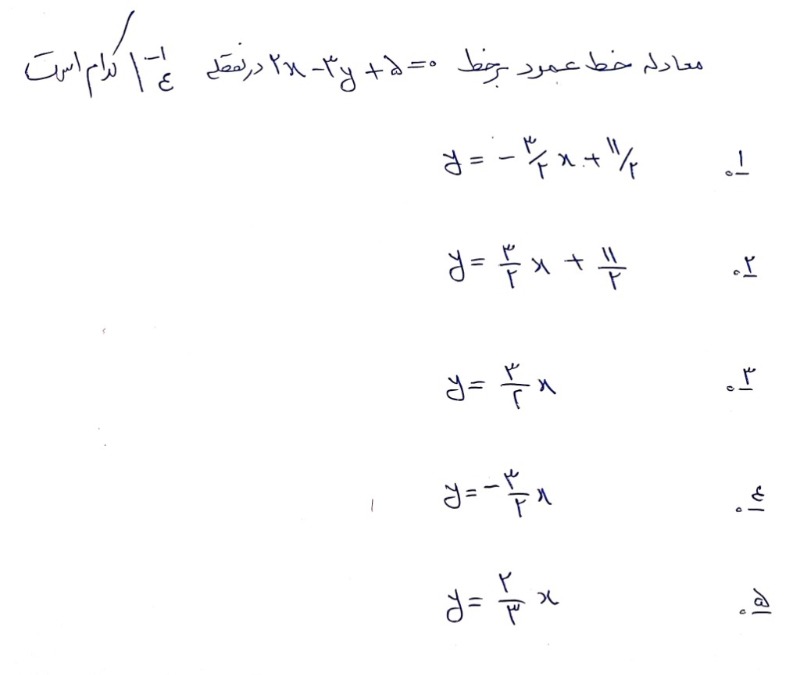 معادله خط عمود بر خط ۲x − ۳y + ۵ = ۰ در نقطه |⁻¹₄ کدام است
۱. y = − ۳/۲ x + ۱۱/۲
۲. y = ۳/۲ x + ۱۱/۲
۳. y = ۳/۲ x
۴. y = − ۳/۲ x
۵. y = ۲/۳ x